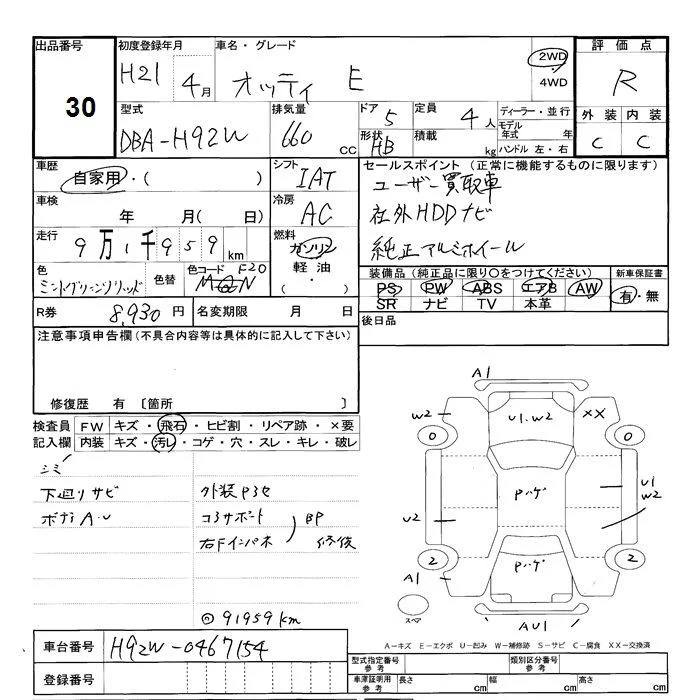 出品番号 初度登録年月 車名・グレード 評価点
30 H21 4月 オッティ E 2WD 4WD R
型式 排気量 ドア 5 定員 4人 ディーラー・並行 外装 内装
DBA-H92W 660cc 形状 HB 積載 kg モデル年式 年 ハンドル 左・右 C C
車歴 シフト セールスポイント(正常に機能するものに限ります)
自家用・( ) IAT ユーザー買取車
車検 年 月( 日) 冷房 AC 社外HDDナビ
走行 9万1千959km 燃料 ガソリン 純正アルミホイール
軽油・( )
色 色替 色コード F20 装備品(純正品に限り○をつけてください) 新車保証書
ミントグリーンソリッド PS PW ABS エアB AW 有・無
SR ナビ TV 本革
R券 8,930円 名変期限 月 日 後日品
注意事項申告欄(不具合内容等は具体的に記入して下さい)
修復歴 有 〔箇所 〕
検査員 FW キズ・飛石・ヒビ割・リペア跡・×要
記入欄 内装 キズ・汚レ・コゲ・穴・スレ・キレ・破レ
シミ
下廻りサビ 外装P3セ
ボディA・U コアサポート BP
右Fインパネ 修復
◎91959km
車台番号 H92W-0467154
登録番号
A1
W2 U1.W2 XX
0 0
Pハゲ U1
W2
U2
2 Pハゲ 2
A1
スペア AU1
A-キズ E-エクボ U-凹み W-補修跡 S-サビ C-腐食 XX-交換済
型式指定番号 参考 類別区分番号 参考
車庫証明用 参考 長さ cm 幅 cm 高さ cm